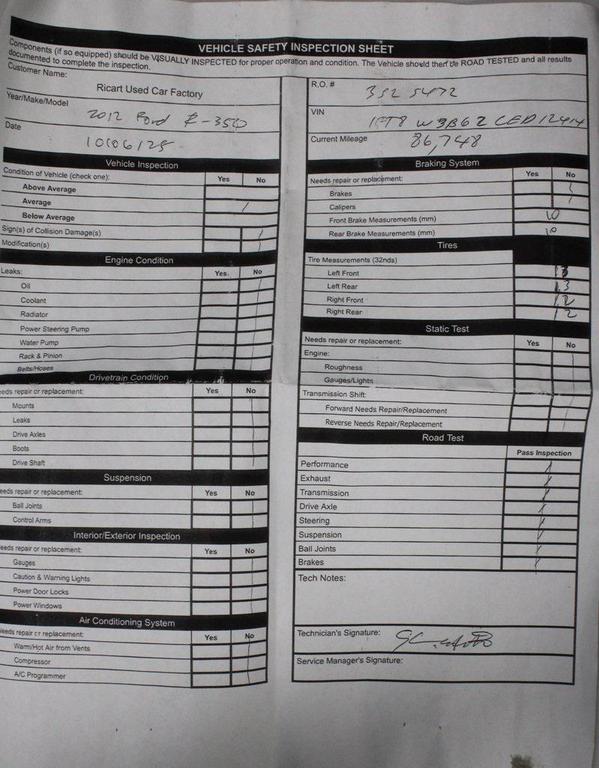 VEHICLE SAFETY INSPECTION SHEET
Components (if so equipped) should be VISUALLY INSPECTED for proper operation and condition. The Vehicle should then be ROAD TESTED and all results
documented to complete the inspection.
Customer Name:
Ricart Used Car Factory
Year/Make/Model
2012 Ford F-350
Date
Vehicle Inspection
Condition of Vehicle (check one): Yes No
Above Average
Average /
Below Average
Sign(s) of Collision Damage(s) /
Modification(s)
Engine Condition
Leaks: Yes No
Oil
Coolant
Radiator
Power Steering Pump
Water Pump
Rack & Pinion
Belts/Hoses
Drivetrain Condition
eeds repair or replacement: Yes No
Mounts
Leaks
Drive Axles
Boots
Drive Shaft
Suspension
eeds repair or replacement: Yes No
Ball Joints
Control Arms
Interior/Exterior Inspection
eeds repair or replacement: Yes No
Gauges
Caution & Warning Lights
Power Door Locks
Power Windows
Air Conditioning System
eeds repair or replacement: Yes No
Warm/Hot Air from Vents
Compressor
A/C Programmer
R.O. #
352 5472
VIN
Current Mileage 86,748
Braking System
Needs repair or replacement: Yes No
Brakes
Calipers
Front Brake Measurements (mm) 10
Rear Brake Measurements (mm) 10
Tires
Tire Measurements (32nds)
Left Front 13
Left Rear 13
Right Front 12
Right Rear 12
Static Test
Needs repair or replacement: Yes No
Engine:
Roughness
Gauges/Lights
Transmission Shift:
Forward Needs Repair/Replacement
Reverse Needs Repair/Replacement
Road Test
Pass Inspection
Performance /
Exhaust /
Transmission /
Drive Axle /
Steering /
Suspension /
Ball Joints /
Brakes /
Tech Notes:
Technician's Signature:
Service Manager's Signature: